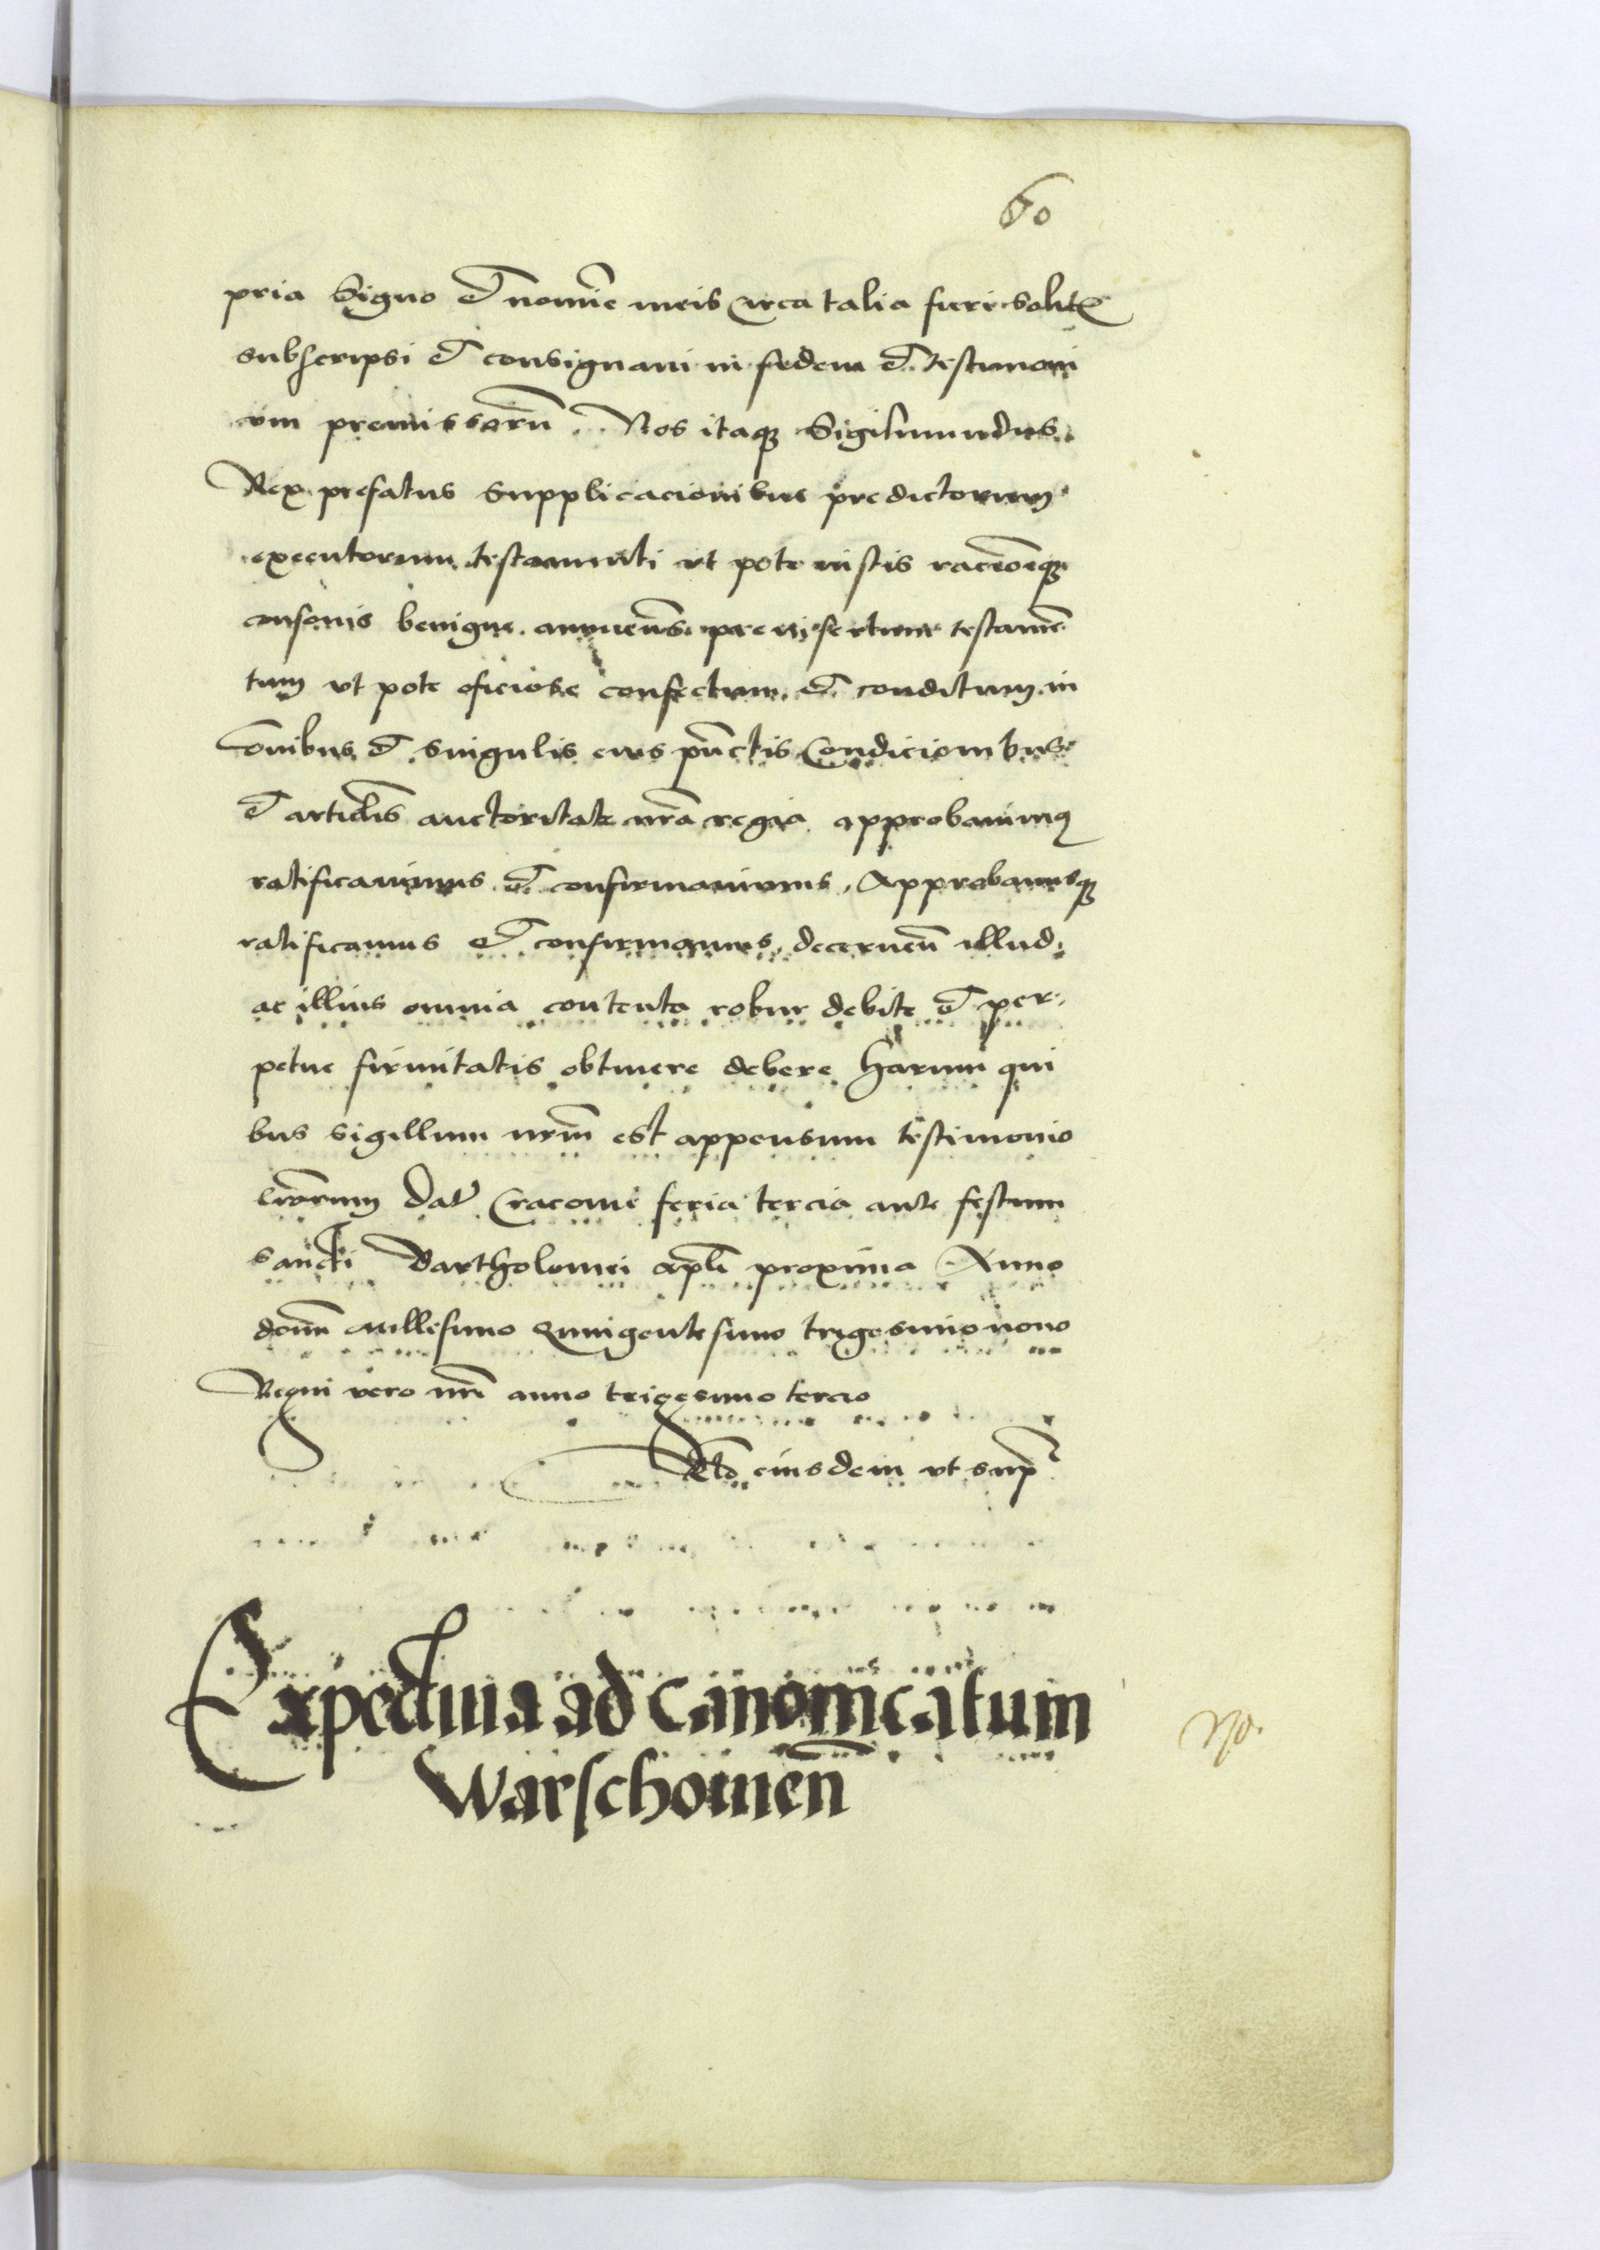 60
pria Signo et nomīe meis circa talia fieri solitꝭ
subscripsi et consignavi in fidem et testimoni
um premissorū Nos itaqꝫ Sigismundus
Rex prefatus supplicacionibus predictorum
executorum testamenti ut pote iustis racioniqꝫ
consonis benigne annuen̄s preinsertum testamē
tum ut pote oficiose confectum et conditum in
Om̄ibus et singulis eius pūctis Condicionibus
et articl̄is auctoritate nrā regia approbavimꝰ
ratificavimus et confirmavimus, Approbamusqꝫ
ratificamus et confirmamus, decernen̄ illud
ac illius omnia contenta robur debite et per
petue firmitatis obtinere debere harum qui
bus sigillum nrm̄ est appensum testimonio
lrārum Dat Cracovie feria tercia ante festum
sancti Bartholomei apl̄i proxima Anno
domī millesimo Quingentesimo trigesimo nono
Regni vero nrī anno trigesimo tercio
Rlō eiusdem ut supᷓ
Expectiva ad Canonicatum
Warschovien̄